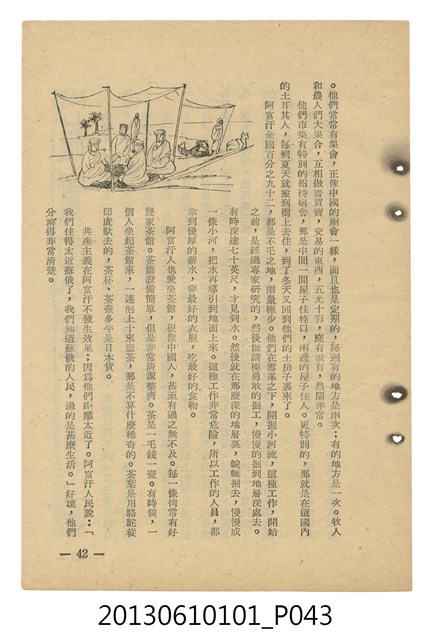 。他們常常有集會，正像中國的廟會一樣，而且也是定期的，每週有的地方是兩次；有的地方是一次。牧人
和農人們大集合，互相做著買賣，交易的東西，五光十色，應有盡有，熱鬧非常。
他們市集有特別的招待宿舍，那是中間一間屋子住牲口，兩邊的屋子住人。更特別的，那就是在這國內
的土耳其人，每到夏天就搬到樹上去住，到了冬天又回到他們的土房子裏來了。
阿富汗全國百分之九十二，都是不毛之地，雨量極少。他們在雪峯之下，開掘小河流，這種工作，開始
之前，是經過專家研究的，然後僱請極勇敢的掘工，慢慢的掘到地層深處去。
有時深達七十英尺，才見到水。然後就在那麼深的地層裏，蜿蜒掘去，慢慢成
一條小河，把水再導引到地面上來。這種工作非常危險，所以工作的人員，都
拿到優厚的薪水，穿最好的衣服，吃最好的食物。
阿富汗人也愛坐茶館，很像中國人，甚至有過之無不及。每一條街常有好
幾家茶館。茶館設備簡單，但是非常清潔整齊。茶是一毛錢一壺。有時候，一
個人坐起茶館來，一連泡上十來壺茶，那是不算什麼稀奇的。茶葉是用駱駝從
印度馱去的，茶杯、茶壺多半是日本貨。
共產主義在阿富汗不發生效果；因為他們距離太近了。阿富汗人民說：「
我們住得太近蘇俄了，我們知道蘇俄的人民，過的是甚麼生活。」好壞，他們
分辨得非常清楚。
— 42 —
20130610101_P043